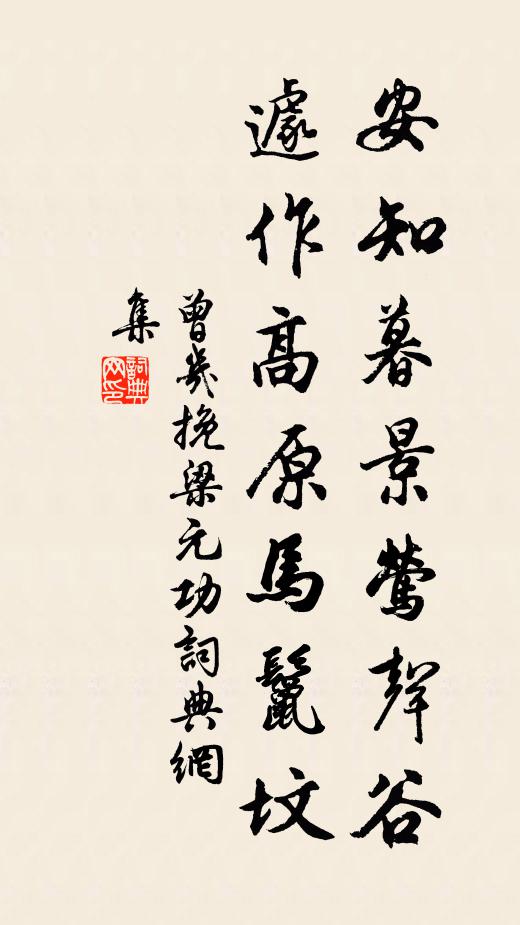 安知暮景莺聲谷
遽作高原馬鬣坟
曾幾挽梁元功詞典網
集
詞典網印